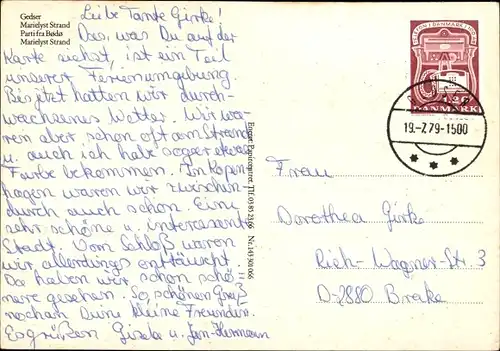 Gedser
Marielyst Strand
Parti fra Bødø
Marielyst Strand
Liebe Tante Girke!
Das, was Du auf der
Karte siehst, ist ein Teil
unserer Ferienumgebung.
Bis jetzt hatten wir durch-
wachsenes Wetter. Wir wa-
ren aber schon oft am Strand
u. auch ich habe sogar etwas
Farbe bekommen. In Kopen-
hagen waren wir zwischen-
durch auch schon. Eine
sehr schöne u. interessante
Stadt. Vom Schloß waren
wir allerdings enttäuscht.
Da haben wir schon schö-
nere gesehen. So, schönen Gruß
noch an Deine kleine Freundin.
Es grüßen Gisela u. Jan-Hermann
Eneret Papirogaver. Tlf. 03 87 21 66 Nr. 145 301 066
DANMARK
19.-7.79-1500
Frau
Dorothea Girke
Rich-Wagner-Str. 3
D-2880 Brake